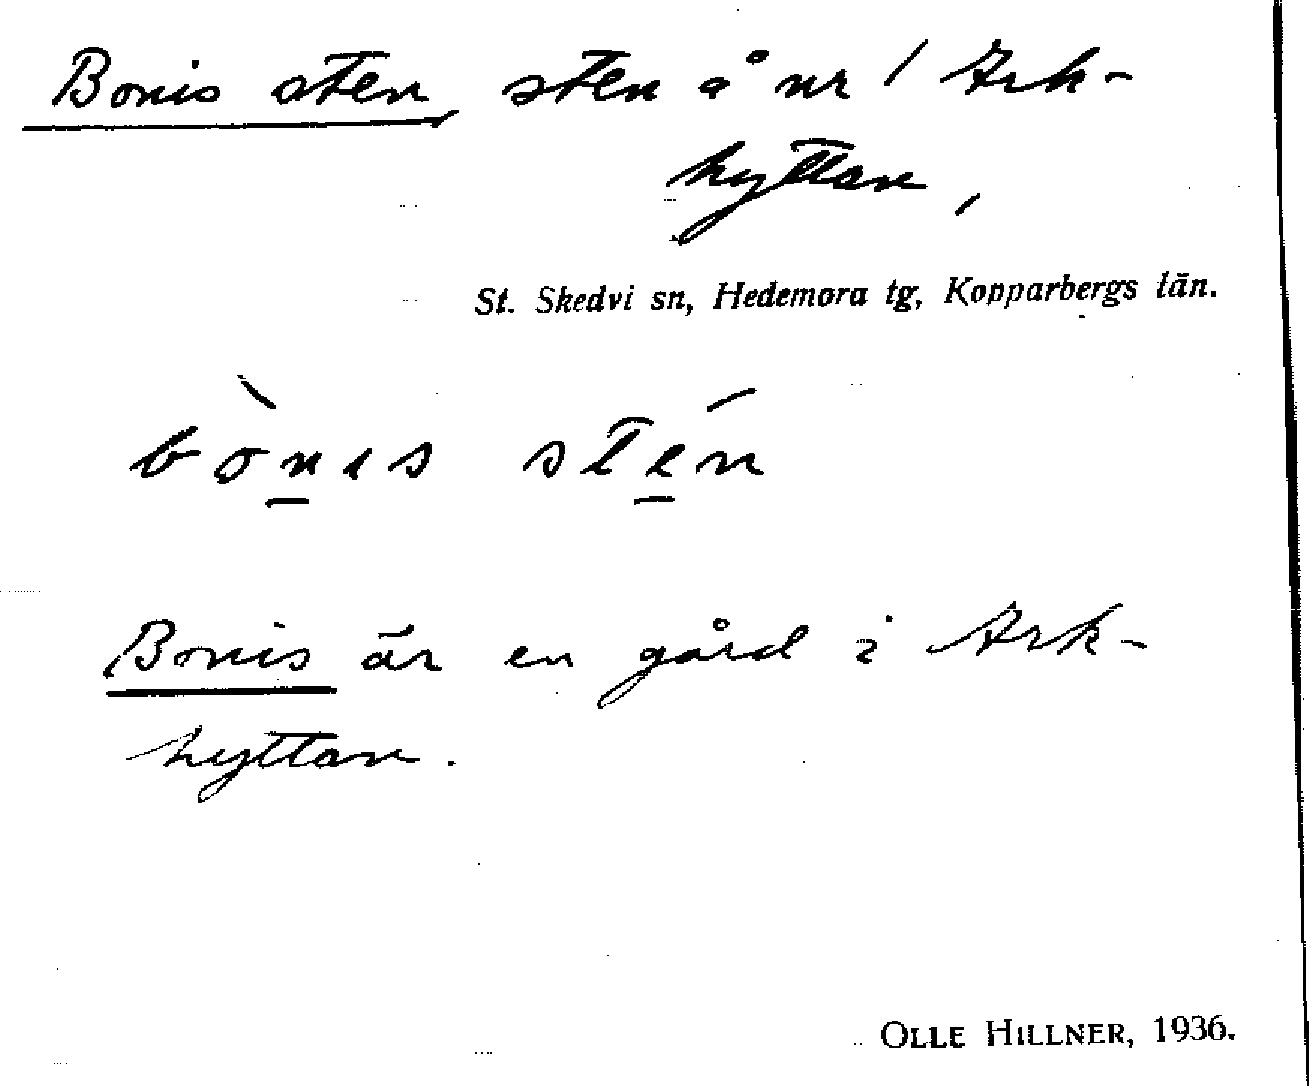 Bonis sten, sten å nr 1 Ark-
hyttan,
St. Skedvi sn, Hedemora tg, Kopparbergs län.
bònis stén
Bonis är en gård i Ark-
hyttan.
OLLE HILLNER, 1936.